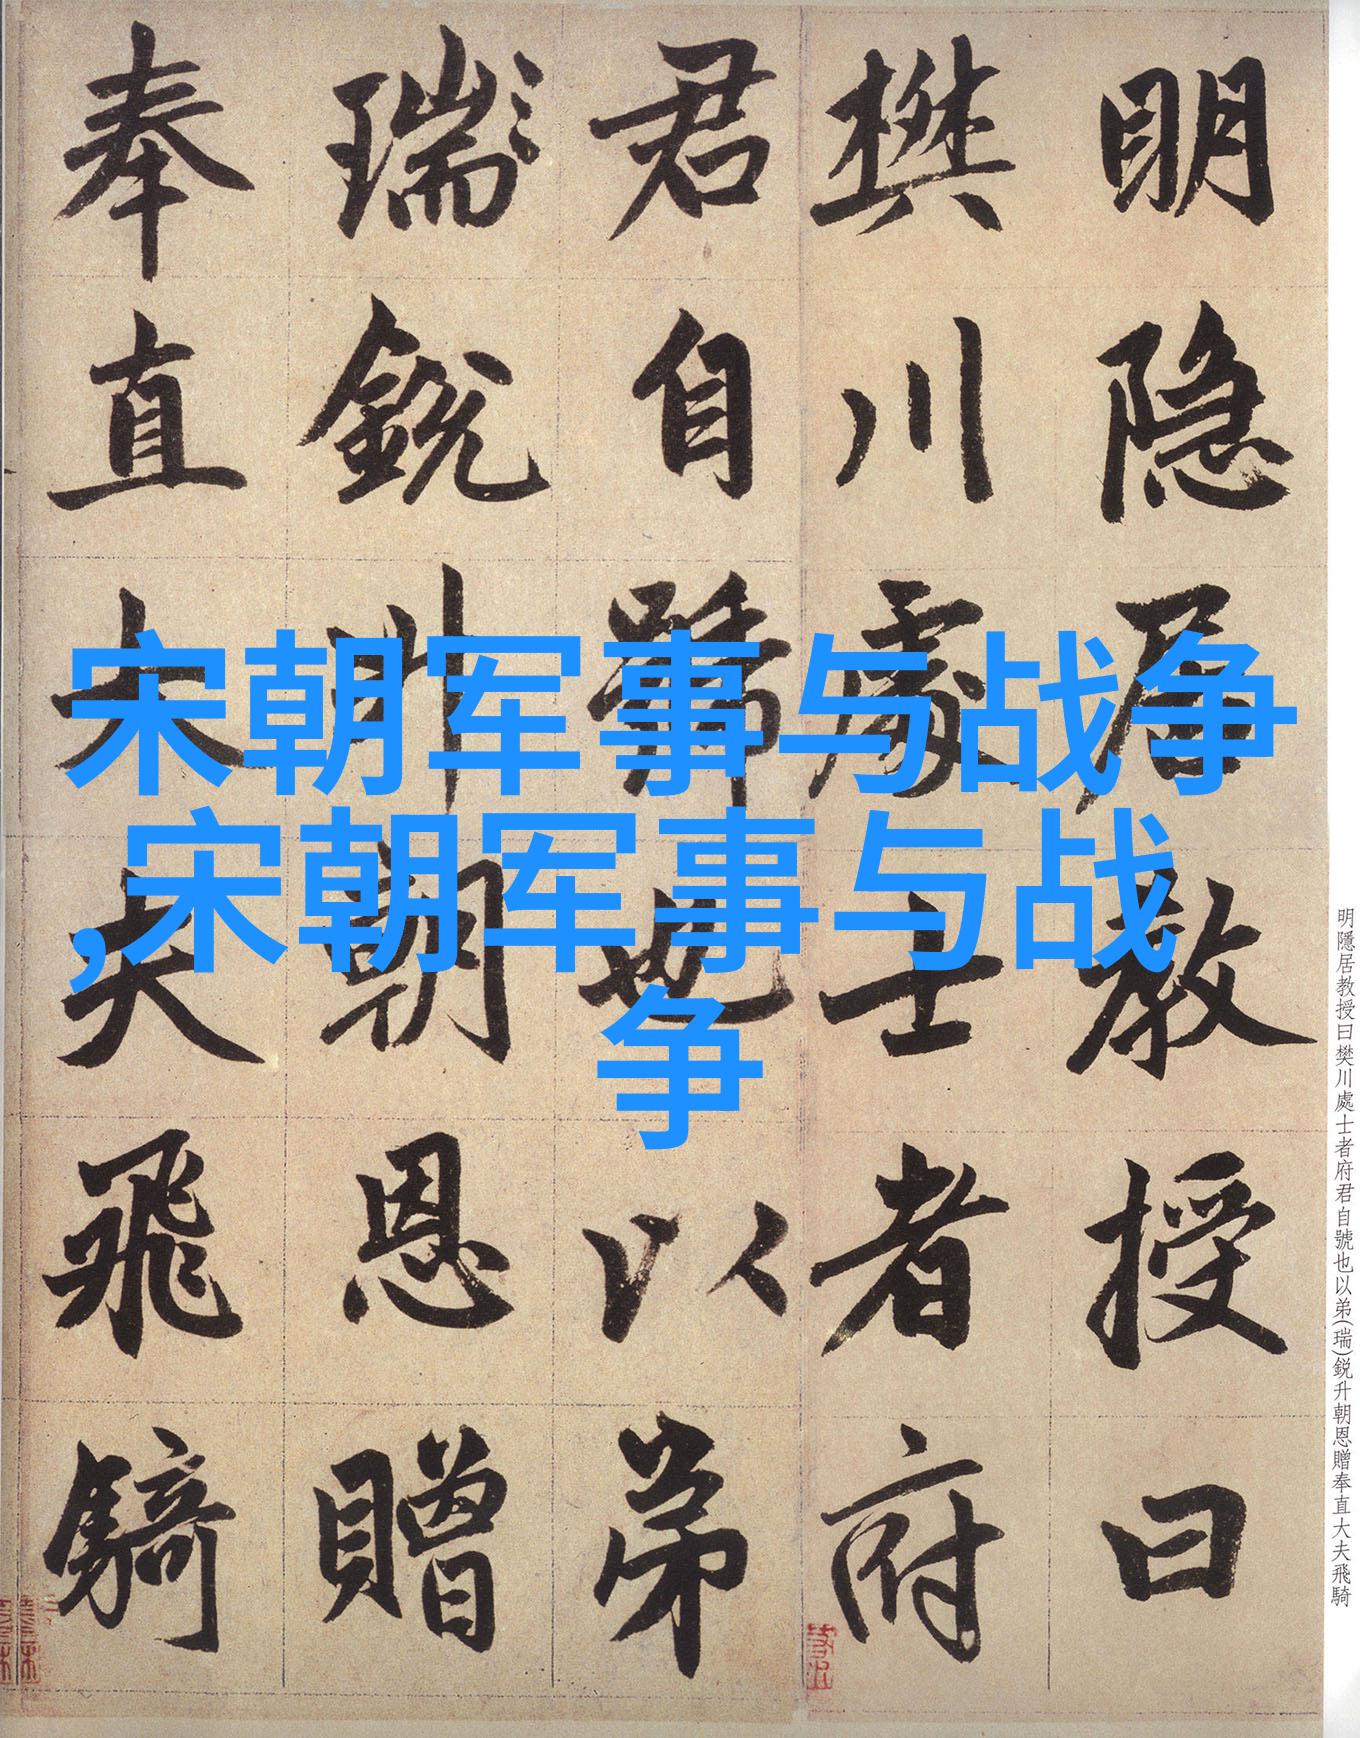 宋朝军事与战争
,宋朝军事与战
争
明隐居教授曰
樊川處士者府
君自號也以弟
瑞銳升朝恩贈
奉直大夫飛騎
明隱居教授曰樊川處士者府君自號也以弟(瑞)鋭升朝恩贈奉直大夫飛騎